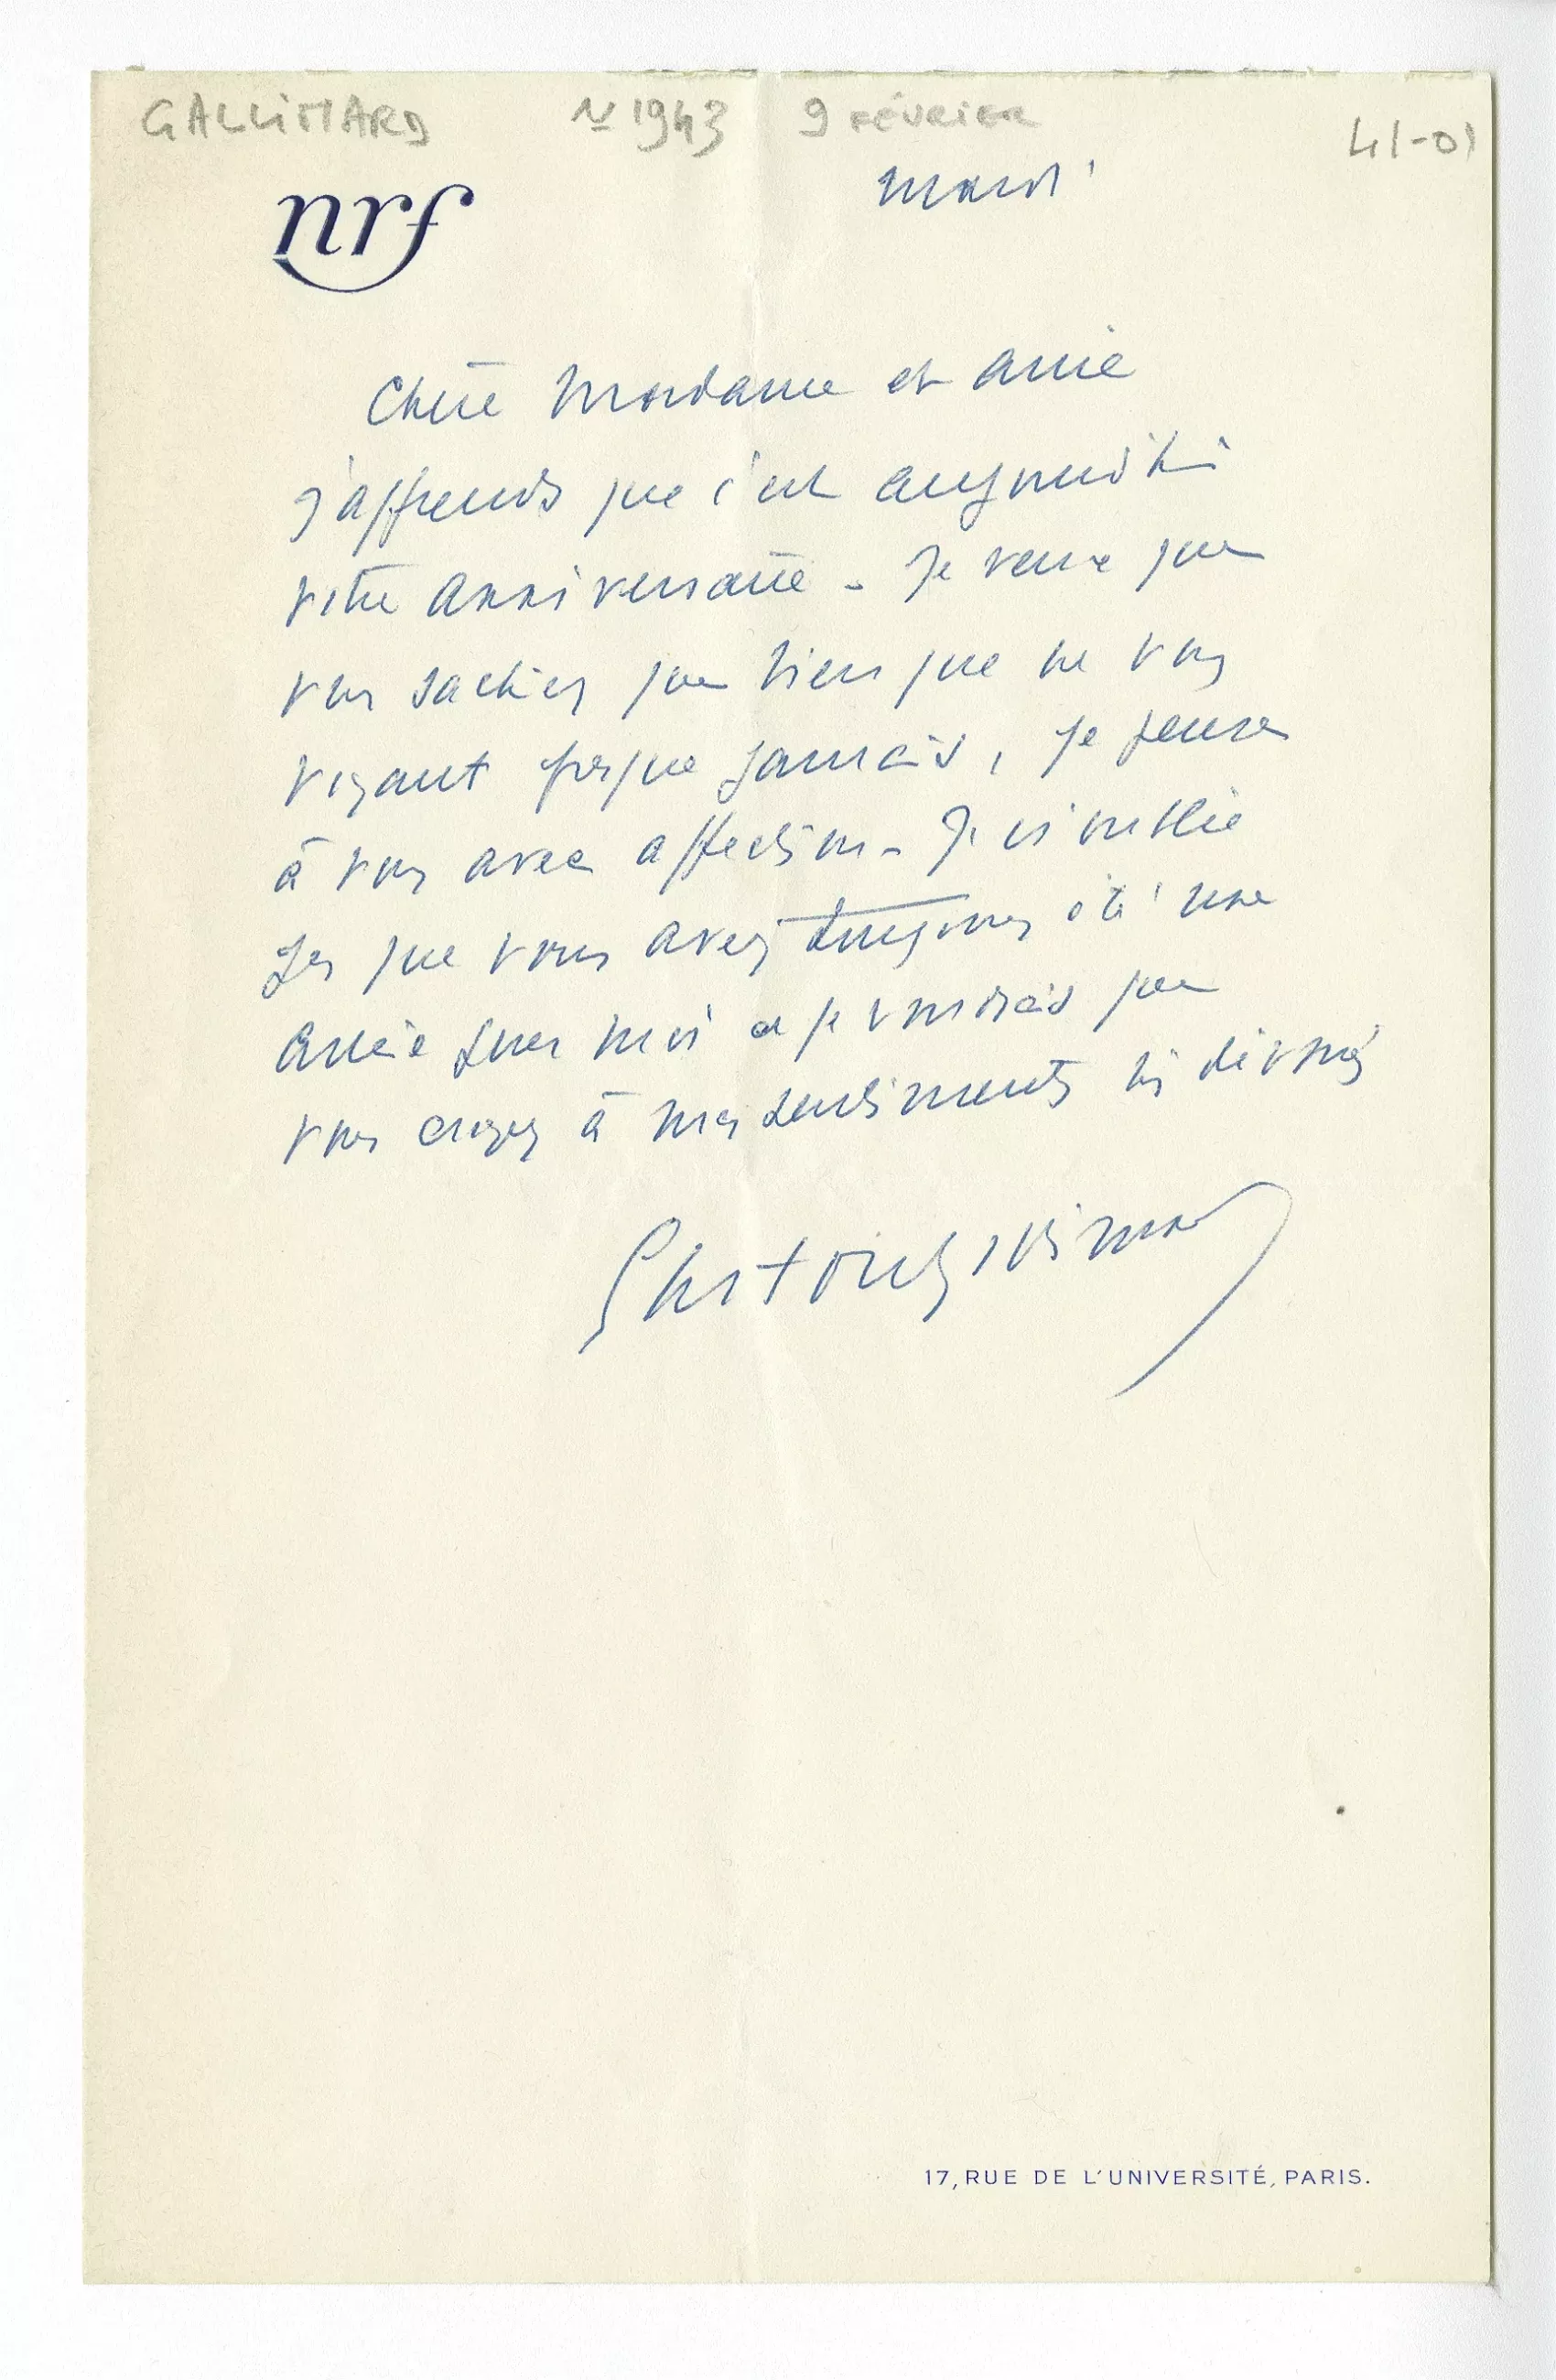 GALLIMARD N 1943 9 FÉVRIER 41-01
mardi
nrf
Chère Madame et amie
J'apprends que c'est aujourd'hui
votre anniversaire - Je veux que
vous sachiez que bien que ne vous
voyant presque jamais, je pense
à vous avec affection - Je n'oublie
pas que vous avez toujours été une
amie pour moi et je voudrais que
vous croyez à mes sentiments très dévoués
Gaston Gallimard
17, RUE DE L'UNIVERSITÉ, PARIS.